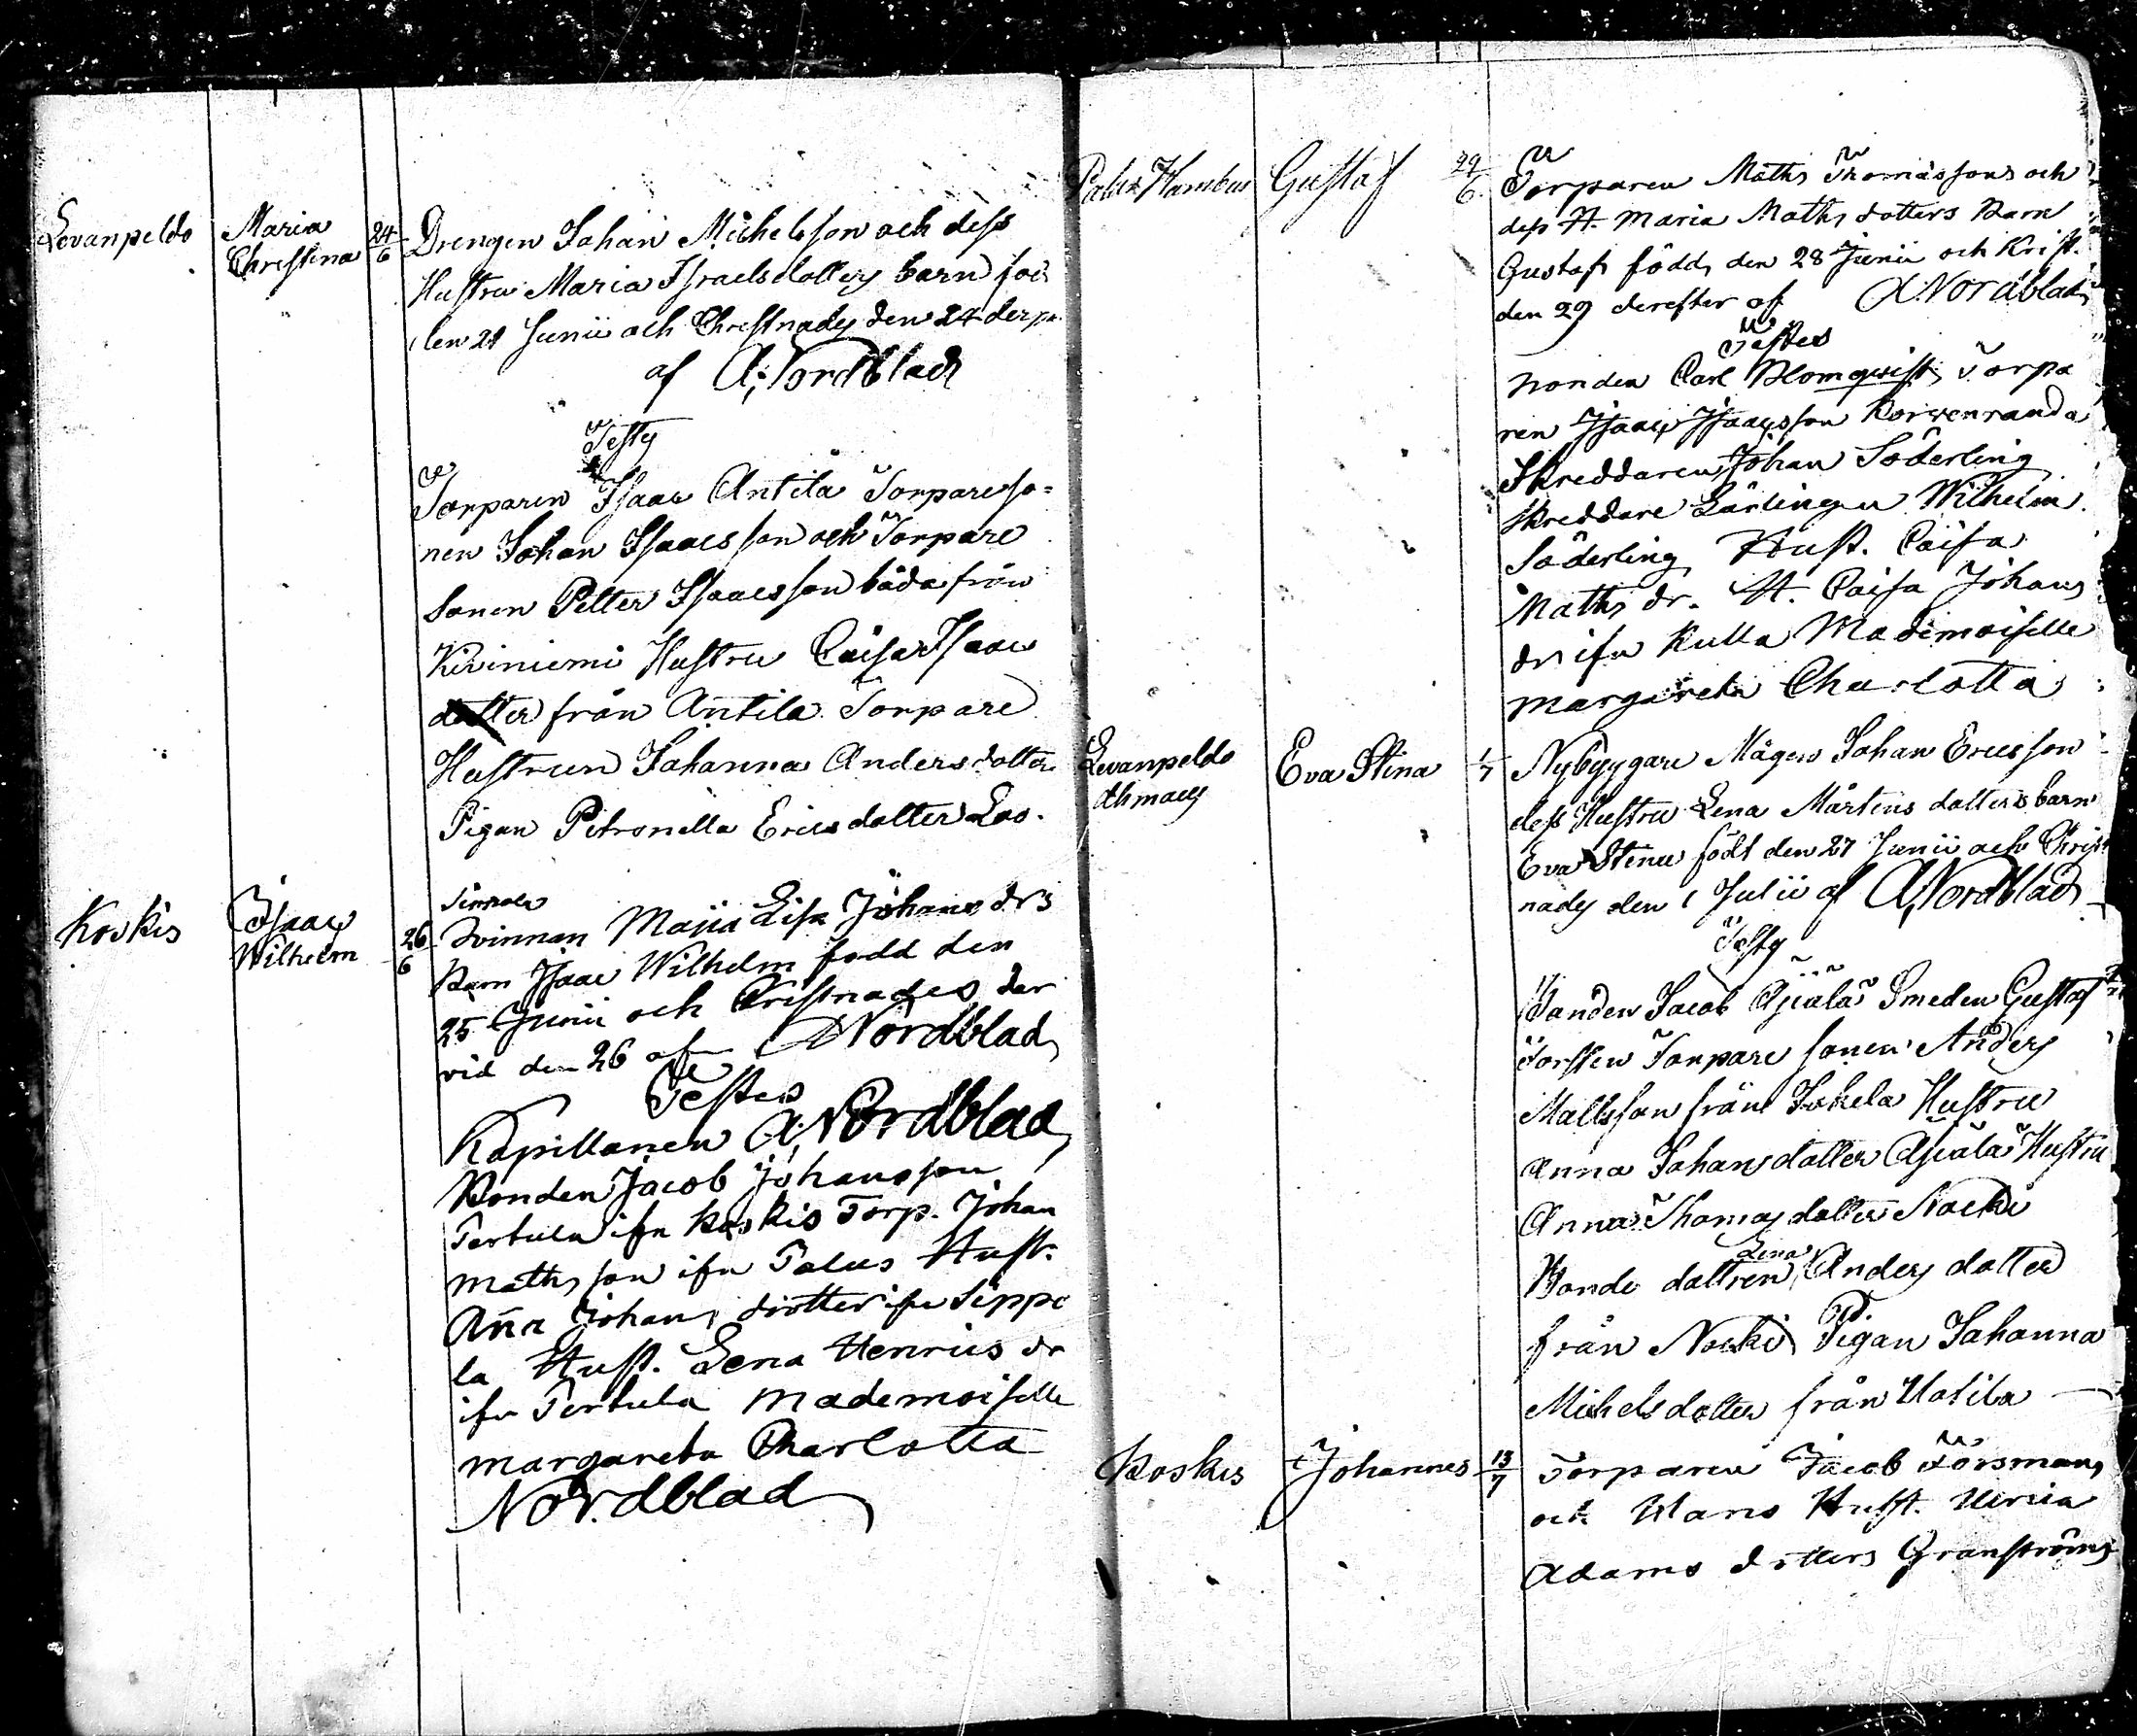 Levanpeldo
Maria
Christina
24/6
Drengen Johan Michelsson och dess
Hustru Maria Israelsdotters barn föd
den 21 Junii och Christnades den 24 derpå
af A. Nordblad
Testes
Torparen Isaac Antila Torpareso=
nen Johan Isaacsson och Torpare
Sonen Petter Isaacsson båda från
Kiviniemi Hustru Caisa Isaacs
dotter från Antila Torpare
Hustrun Johanna Andersdotter
Pigan Petronella Ericsdotter
Koskis
Isaac
Wilhelm
26/6
Qvinnan Maja Lisa Johans drs
Barn Isaac Wilhelm född den
25 Junii och Kristnades der
vid den 26 af Nordblad
Testes
Kapillanen A. Nordblad
Bonden Jacob Johansson
Pertula ifn Koskis Torp. Johan
Mathsson ifn Palus Hustr.
Aña Johans dotter ifn Sippo
la Hust. Lena Henrics dr
ifn Pertula Mademoiselle
Margareta Charlotta
Nordblad
Palus Hambus
Gustaf
29/6
Torparen Maths Thomassons och
dess H. Maria Maths dotters Barn
Gustaf född den 28 Junii och Krist.
den 29 derefter af A. Nordblad
Testes
Bonden Carl Blomqwist, Torpa
ren Isaac Isaacsson Korvenranda
Skreddaren Johan Söderling
Skreddare Lärlingen Wilhelm
Söderling Hust. Caisa
Maths dr. H. Caisa Johans
dr ifn Kulla Mademoiselle
Margareta Charlotta
Levanpeldo
Eva Stina
1/7
Nybyggare Mågen Johan Ericsson
dess Hustru Lena Mårtens dotters barn
Eva Stina födt den 27 Junii och Christ
nades den 1 Julii af A. Nordblad
Testes
Bonden Jacob Äjälä Smeden Gustaf
Torsten Torpare sonen Anders
Mattsson från Jokela Hustru
Anna Johansdotter Äjälä Hustru
Anna Thomasdotter Nocki
Bonde dottren Lena Anders dotter
från Nocki Pigan Johanna
Michelsdotter från Uotila
Koskis
Johannes
13/7
Torparen Jacob Forsman,
och Hans Hust. Ulrica
Adams dotters Granströms